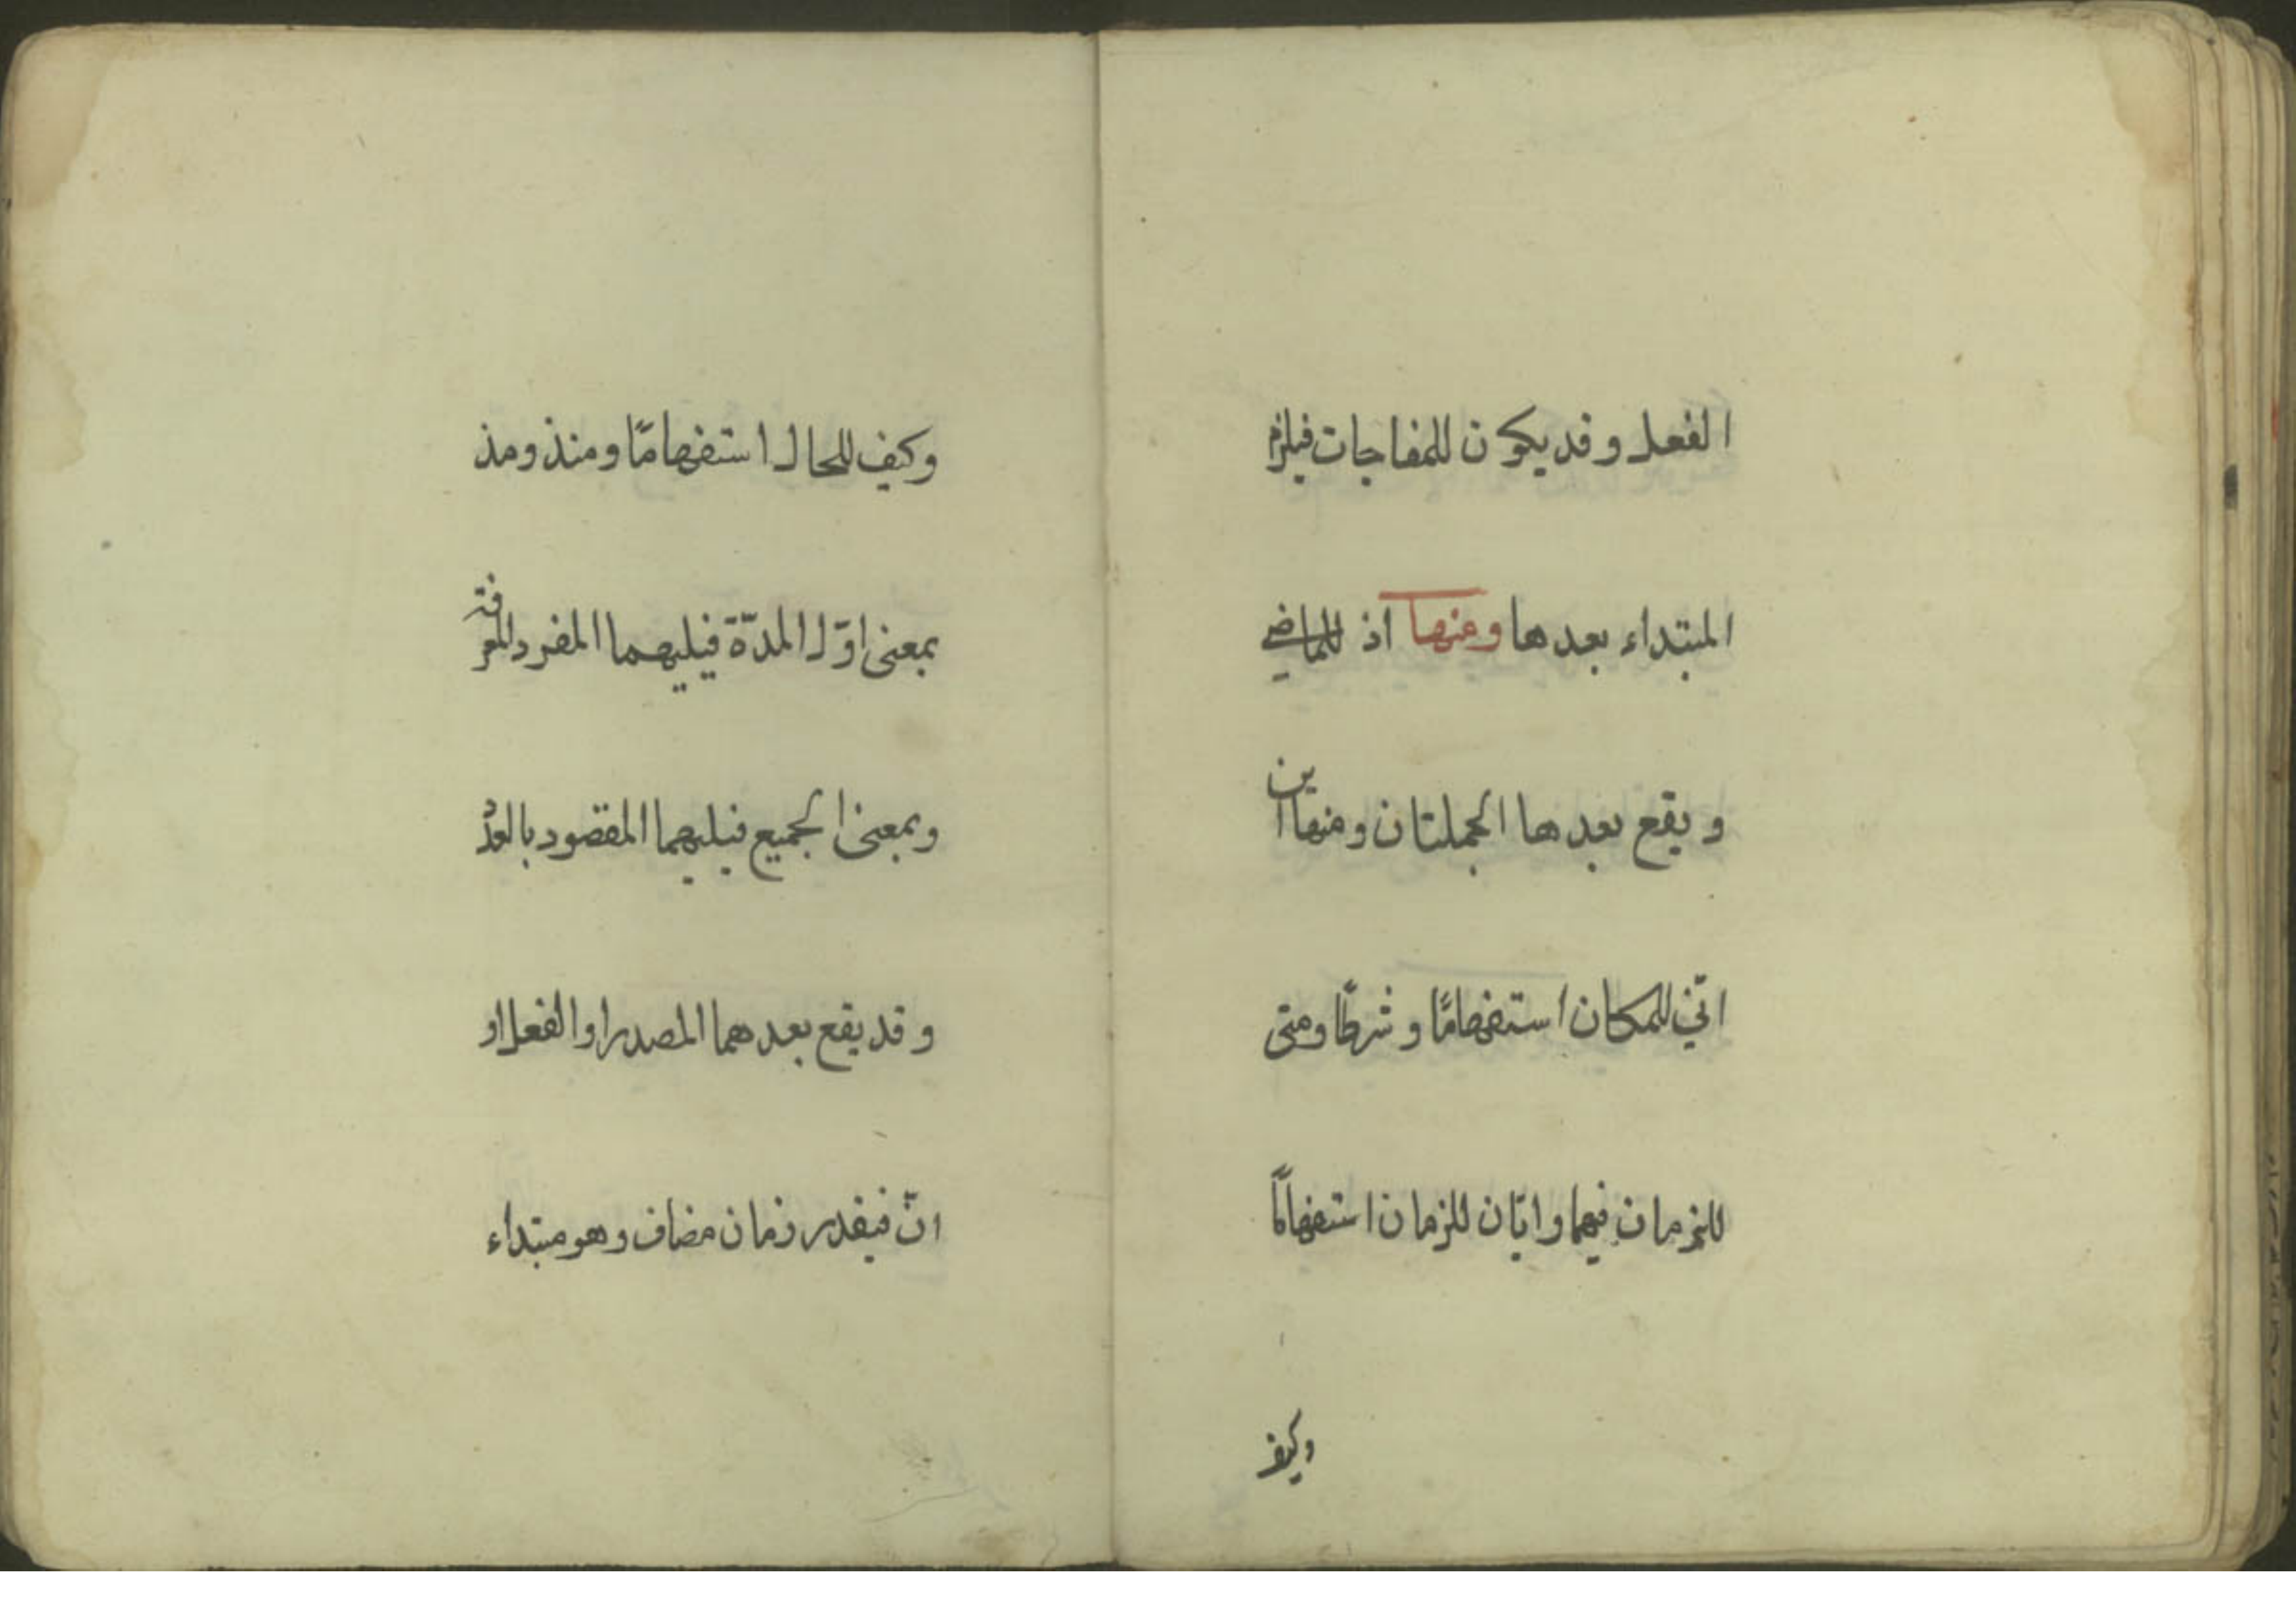 الفعل و قد يكون للمفاجات فيلزم
المبتداء بعدها ومنها اذ للماضي
و يقع بعدها الجملتان ومنها اين
انّي للمكان استفهامًا و شرطًا ومتى
للزمان فيهما وايّان للزمان استفهامًا
وكيف
وكيف للحال استفهامًا ومنذ ومذ
بمعنى اوّل المدّة فيليهما المفرد المعرفة
وبمعنى الجميع فيليهما المقصود بالعدد
و قد يقع بعدهما المصدر او الفعل او
انّ فيقدر زمان مضاف وهو مبتداء